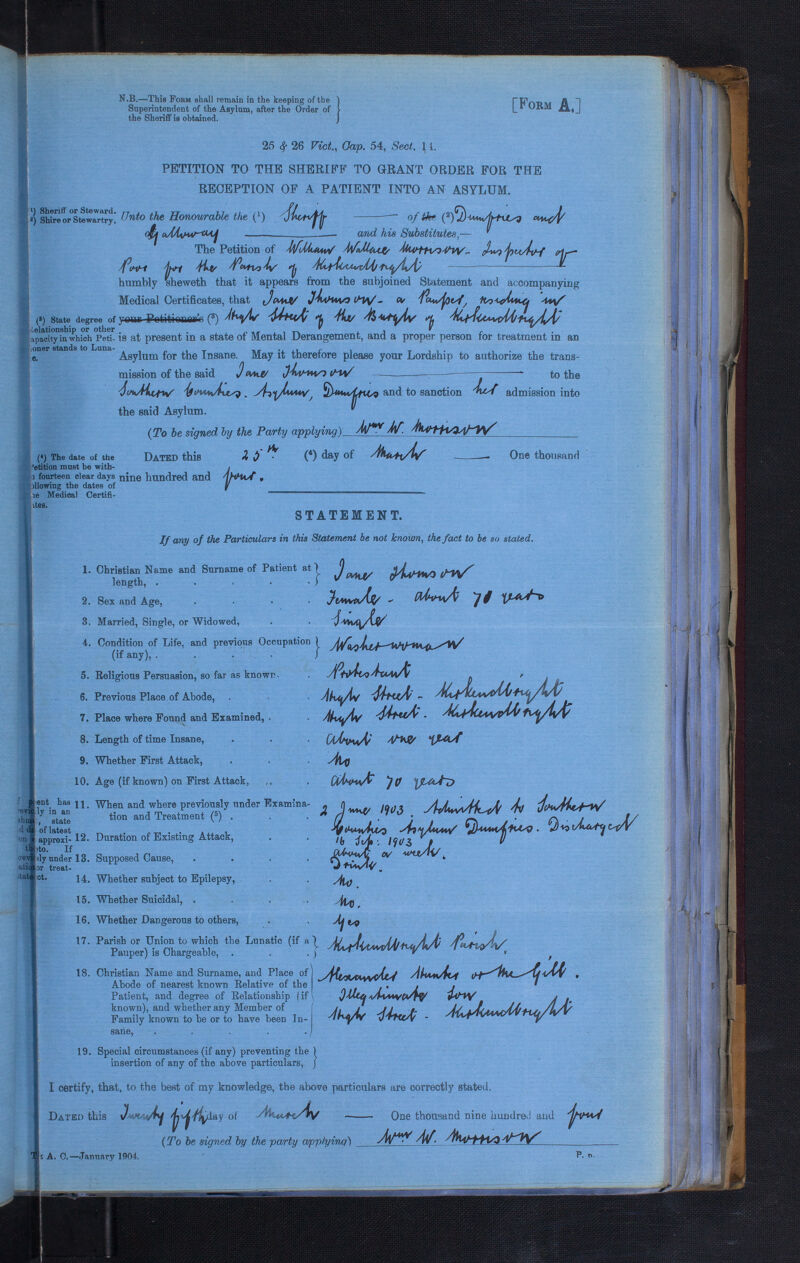 N.B.—This Form shall remain in the keeping of the
Superintendent of the Asylum, after the Order of
the Sheriff is obtained.
[Form A.]
25 & 26 Vict., Cap. 54, Sect. 14.
PETITION TO THE SHERIFF TO GRANT ORDER FOR THE
RECEPTION OF A PATIENT INTO AN ASYLUM.
(¹) Sheriff or Steward.
(²) Shire or Stewartry,
Unto the Honourable the (¹) Sheriff of the (²) Dumfries and
Galloway and his Substitutes,—
The Petition of William Wallace Morrison - Inspector of
Poor for the Parish of Kirkcudbright
humbly sheweth that it appears from the subjoined Statement and accompanying
Medical Certificates, that Jane Thomson - a Pauper, residing in
(³) State degree of
Relationship or other
capacity in which Peti-
tioner stands to Luna-
your Petitioner's (³) High Street of the Burgh of Kirkcudbright
is at present in a state of Mental Derangement, and a proper person for treatment in an
Asylum for the Insane. May it therefore please your Lordship to authorize the trans-
mission of the said Jane Thomson to the
Southern Counties. Asylum, Dumfries and to sanction her admission into
the said Asylum.
(To be signed by the Party applying) Wm W. Morrison
(⁴) The date of the
Petition must be with-
in fourteen clear days
following the dates of
the Medical Certifi-
cates.
Dated this 25th (⁴) day of March One thousand
nine hundred and four.
STATEMENT.
If any of the Particulars in this Statement be not known, the fact to be so stated.
1. Christian Name and Surname of Patient at length, . Jane Thomson
2. Sex and Age, Female - about 70 years
3. Married, Single, or Widowed, Single
4. Condition of Life, and previous Occupation (if any), . Washer-woman
5. Religious Persuasion, so far as known. Protestant
6. Previous Place of Abode, . High Street - Kirkcudbright
7. Place where Found and Examined, . High Street. Kirkcudbright
8. Length of time Insane, About one year
9. Whether First Attack, No
10. Age (if known) on First Attack, About 70 years
11. When and where previously under Examina-
tion and Treatment (⁵) .
2 June 1903 Admitted to Southern
Counties Asylum Dumfries. Discharged
16 Sep. 1903
12. Duration of Existing Attack, About a week.
13. Supposed Cause, Drink.
14. Whether subject to Epilepsy, No.
15. Whether Suicidal, . No.
16. Whether Dangerous to others, Yes
17. Parish or Union to which the Lunatic (if a
Pauper) is Chargeable, . Kirkcudbright Parish.
18. Christian Name and Surname, and Place of
Abode of nearest known Relative of the
Patient, and degree of Relationship (if
known), and whether any Member of
Family known to be or to have been In-
sane,
Alexander Hunter or McGill.
Illegitimate Son
High Street - Kirkcudbright
19. Special circumstances (if any) preventing the
insertion of any of the above particulars,
I certify, that, to the best of my knowledge, the above particulars are correctly stated.
Dated this Twenty fifth day of March One thousand nine hundred and four
(To be signed by the party applying) Wm W. Morrison
A. C.—January 1904.